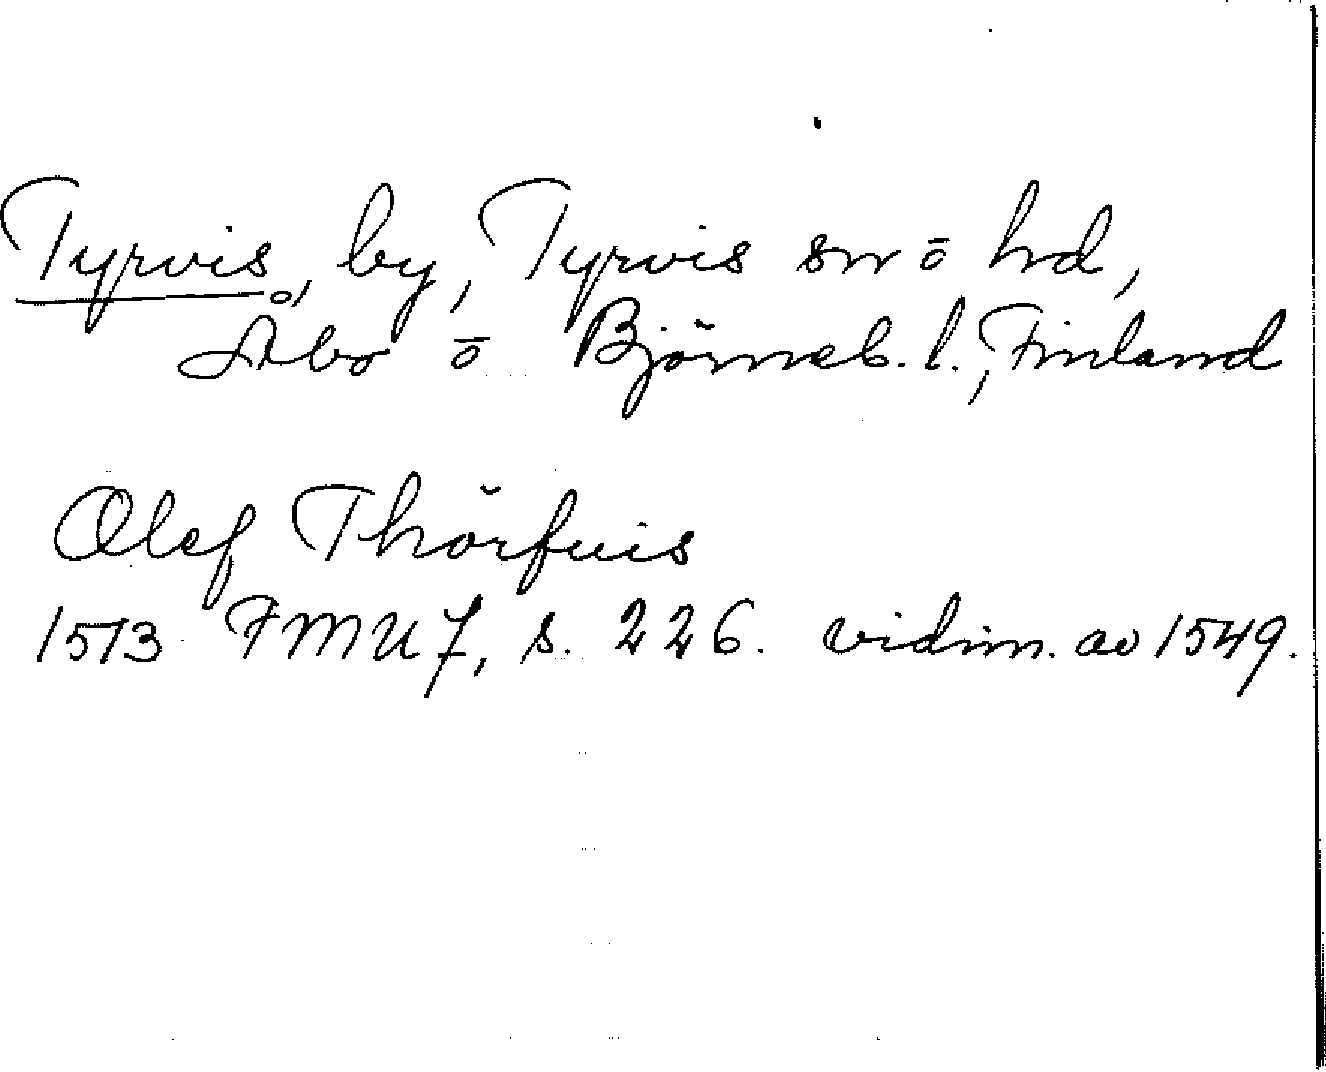 Tyrvis, by, Tyrvis sn ō hd,
Åbo ō Björneb. l., Finland
Olef Thörfuis
1513 FMU 7, s. 226. vidim. av 1549.